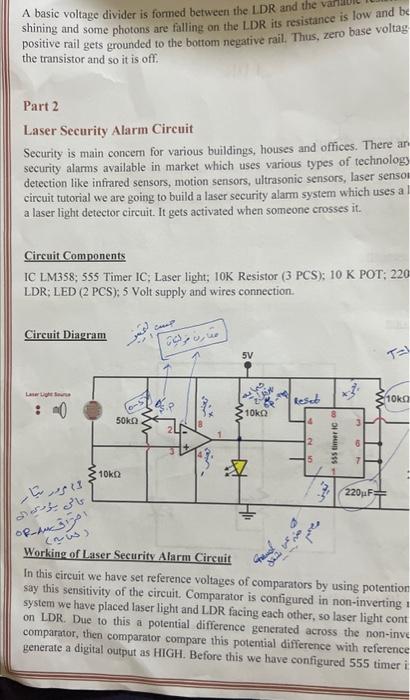 A basic voltage divider is formed between the LDR and the
shining and some photons are falling on the LDR its resistance is low and
positive rail gets grounded to the bottom negative rail. Thus, zero base voltag
the transistor and so it is off.
Part 2
Laser Security Alarm Circuit
Security is main concern for various buildings, houses and offices. There ar
security alarms available in market which uses various types of technology
detection like infrared sensors, motion sensors, ultrasonic sensors, laser senso
circuit tutorial we are going to build a laser security alarm system which uses a l
a laser light detector circuit. It gets activated when someone crosses it.
Circuit Components
IC LM358; 555 Timer IC; Laser light; 10K Resistor (3 PCS); 10 K POT; 220
LDR; LED (2 PCS); 5 Volt supply and wires connection.
Circuit Diagram
5V
Laser Light Source
50kΩ
2
8
3
4
1
10kΩ
Reset
4
8
3
2
6
5
1
7
555 timer IC
10kΩ
10kΩ
220μF
Working of Laser Security Alarm Circuit
In this circuit we have set reference voltages of comparators by using potention
say this sensitivity of the circuit. Comparator is configured in non-inverting
system we have placed laser light and LDR facing each other, so laser light cont
on LDR. Due to this a potential difference generated across the non-inve
comparator, then comparator compare this potential difference with reference
generate a digital output as HIGH. Before this we have configured 555 timer i